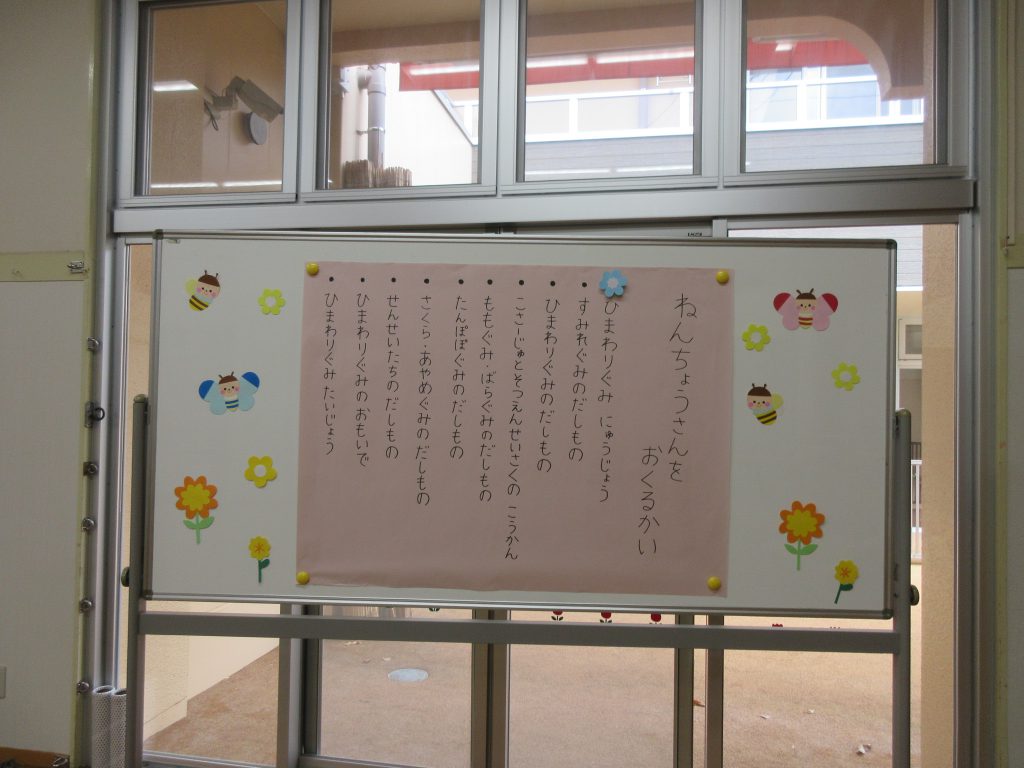 ねんちょうさんを
おくるかい
ひまわりぐみ にゅうじょう
・すみれぐみのだしもの
・ひまわりぐみのだしもの
・こさーじゅとそつえんせいさくの こうかん
・ももぐみ・ばらぐみのだしもの
・たんぽぽぐみのだしもの
・さくら・あやめぐみのだしもの
・せんせいたちのだしもの
・ひまわりぐみのおもいで
・ひまわりぐみ たいじょう